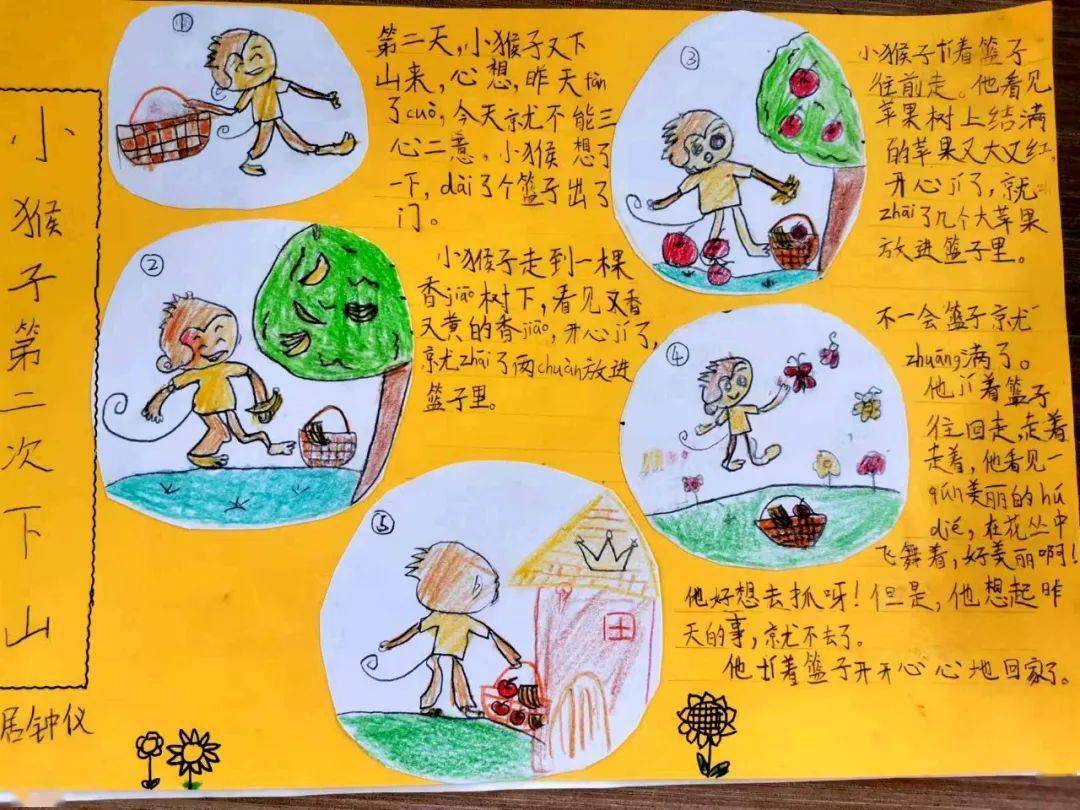 小猴子第二次下山
居钟仪
①
第二天,小猴子又下
山来,心想,昨天fàn
了cuò,今天就不能三
心二意,小猴 想了
一下,dài了个篮子出了
门。
②
小猴子走到一棵
香jiāo树下,看见又香
又黄的香jiāo,开心jí了,
就zhāi了两chuàn放进
篮子里。
③
小猴子tí着篮子
往前走。他看见
苹果树上结满
的苹果又大又红,
开心jí了,就
zhāi了几个大苹果
放进篮子里。
④
不一会篮子就
zhuāng满了。
他tí着篮子
往回走,走着
走着,他看见一
qún美丽的hú
dié,在花丛中
飞舞着,好美丽啊!
他好想去抓呀!但是,他想起昨
天的事,就不去了。
他tí着篮子开开心心地回家了。
⑤